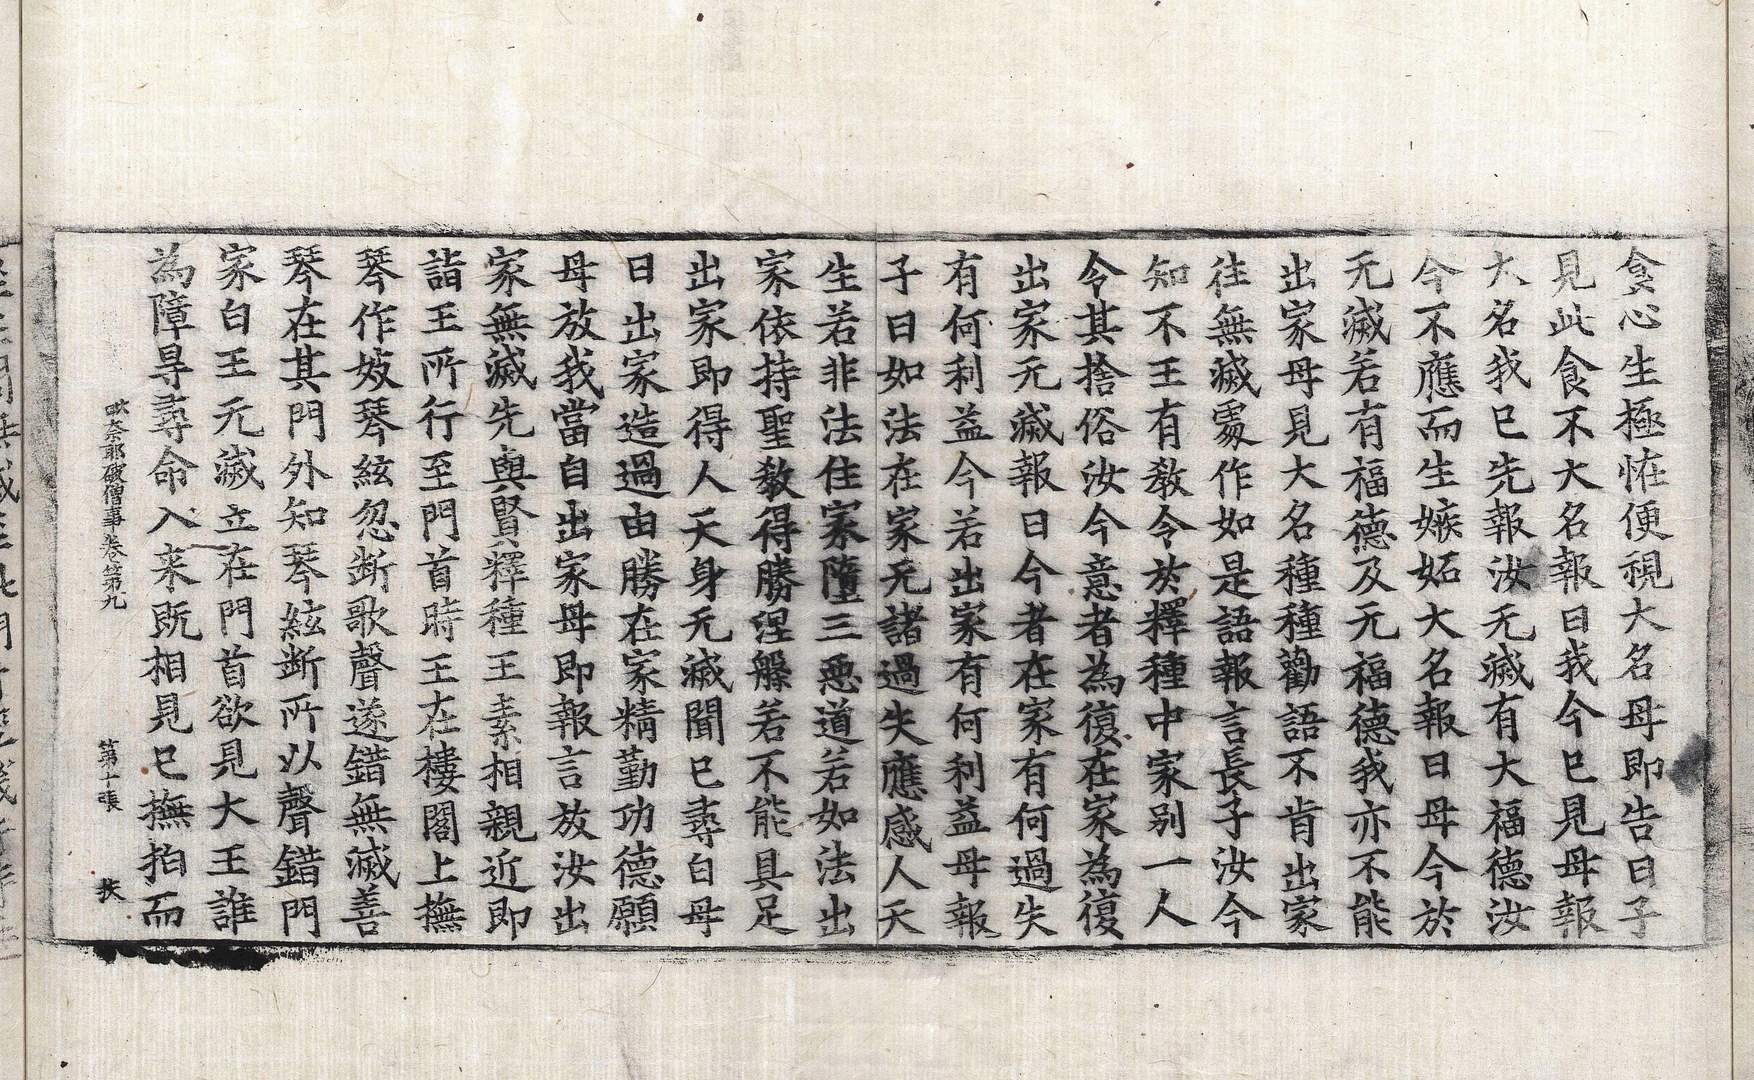 食心生極恠便視大名母即告曰子
見此食不大名報曰我今已見母報
大名我已先報汝无滅有大福德汝
今不應而生嫉妬大名報曰母今於
无滅若有福德及无福德我亦不能
出家母見大名種種勸語不肯出家
往無滅處作如是語報言長子汝今
知不王有教令於釋種中家別一人
令其捨俗汝今意者為復在家為復
出家元滅報曰今者在家有何過失
有何利益今若出家有何利益母報
子曰如法在家无諸過失應感人天
生若非法住家墮三惡道若如法出
家依持聖教得勝涅槃若不能具足
出家即得人天身无滅聞已尋白母
曰出家造過由勝在家精勤功德願
母放我當自出家母即報言放汝出
家無滅先與賢釋種王素相親近即
詣王所行至門首時王在樓閣上撫
琴作妓琴絃忽斷歌聲遂錯無滅善
琴在其門外知琴絃斷所以聲錯門
家白王元滅立在門首欲見大王誰
為障㝵尋命入来既相見已撫拍而
毗奈耶破僧事卷第九 第十張 挾